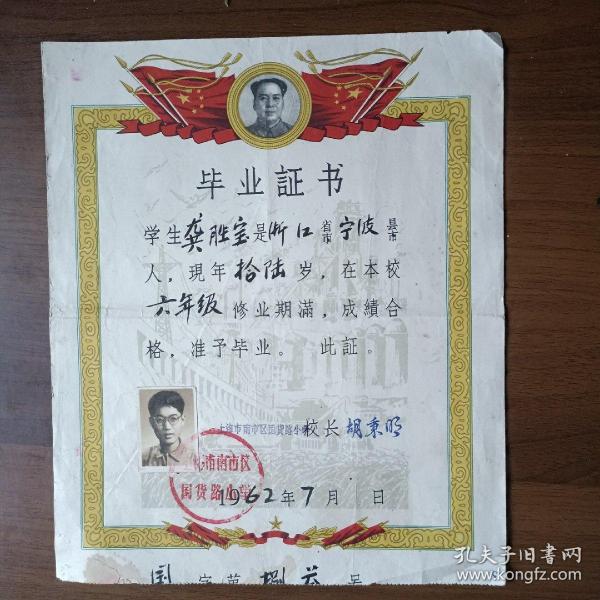 毕业証书
学生龚胜宝是浙江省市宁波县市
人，現年拾陆岁，在本校
六年级修业期滿，成績合
格，准予毕业。此証。
上海市南市区国货路小学校长胡秉明
市南市区
国货路小学
1962年7月 日
国字第捌 号
孔夫子旧书网
www.kongfz.com